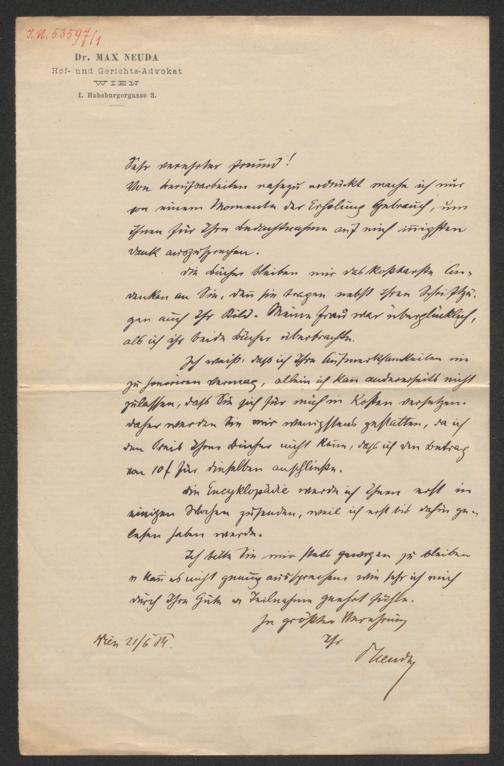 I.N. 53597/1
Dr. MAX NEUDA
Hof- und Gerichts-Advokat
WIEN
I. Habsburgergasse 3.
Sehr verehrter Freund!
Von Berufsarbeiten nahezu erdrückt mache ich nur
von einem Momente der Erholung Gebrauch, um
Ihnen für Ihre Bedachtnahme auf mich innigsten
Dank auszusprechen.
Die Bücher bleiben mir das kostbarste An-
denken an Sie, denn sie tragen nebst Ihren Schriftzü-
gen auch Ihr Bild. Meine Frau war überglücklich,
als ich ihr beide Bücher überbrachte.
Ich weiß: daß ich Ihre Aufmerksamkeiten nie
zu honoriren vermag, allein ich kann andererseits nicht
zulassen, daß Sie sich für mich in Kosten versetzen.
Daher werden Sie mir wenigstens gestatten, da ich
den Preis Ihrer Bücher nicht kenne, daß ich den Betrag
von 10 f für dieselben anschließe.
Die Encyklopädie werde ich Ihnen erst in
einigen Wochen zusenden, weil ich erst bis dahin ge-
lesen haben werde.
Ich bitte Sie mir stets gewogen zu bleiben
u kann es nicht genug aussprechen wie sehr ich mich
durch Ihre Güte u Teilnahme geehrt fühle.
In größter Verehrung
Ihr
Neuda
Wien 21/6 84.